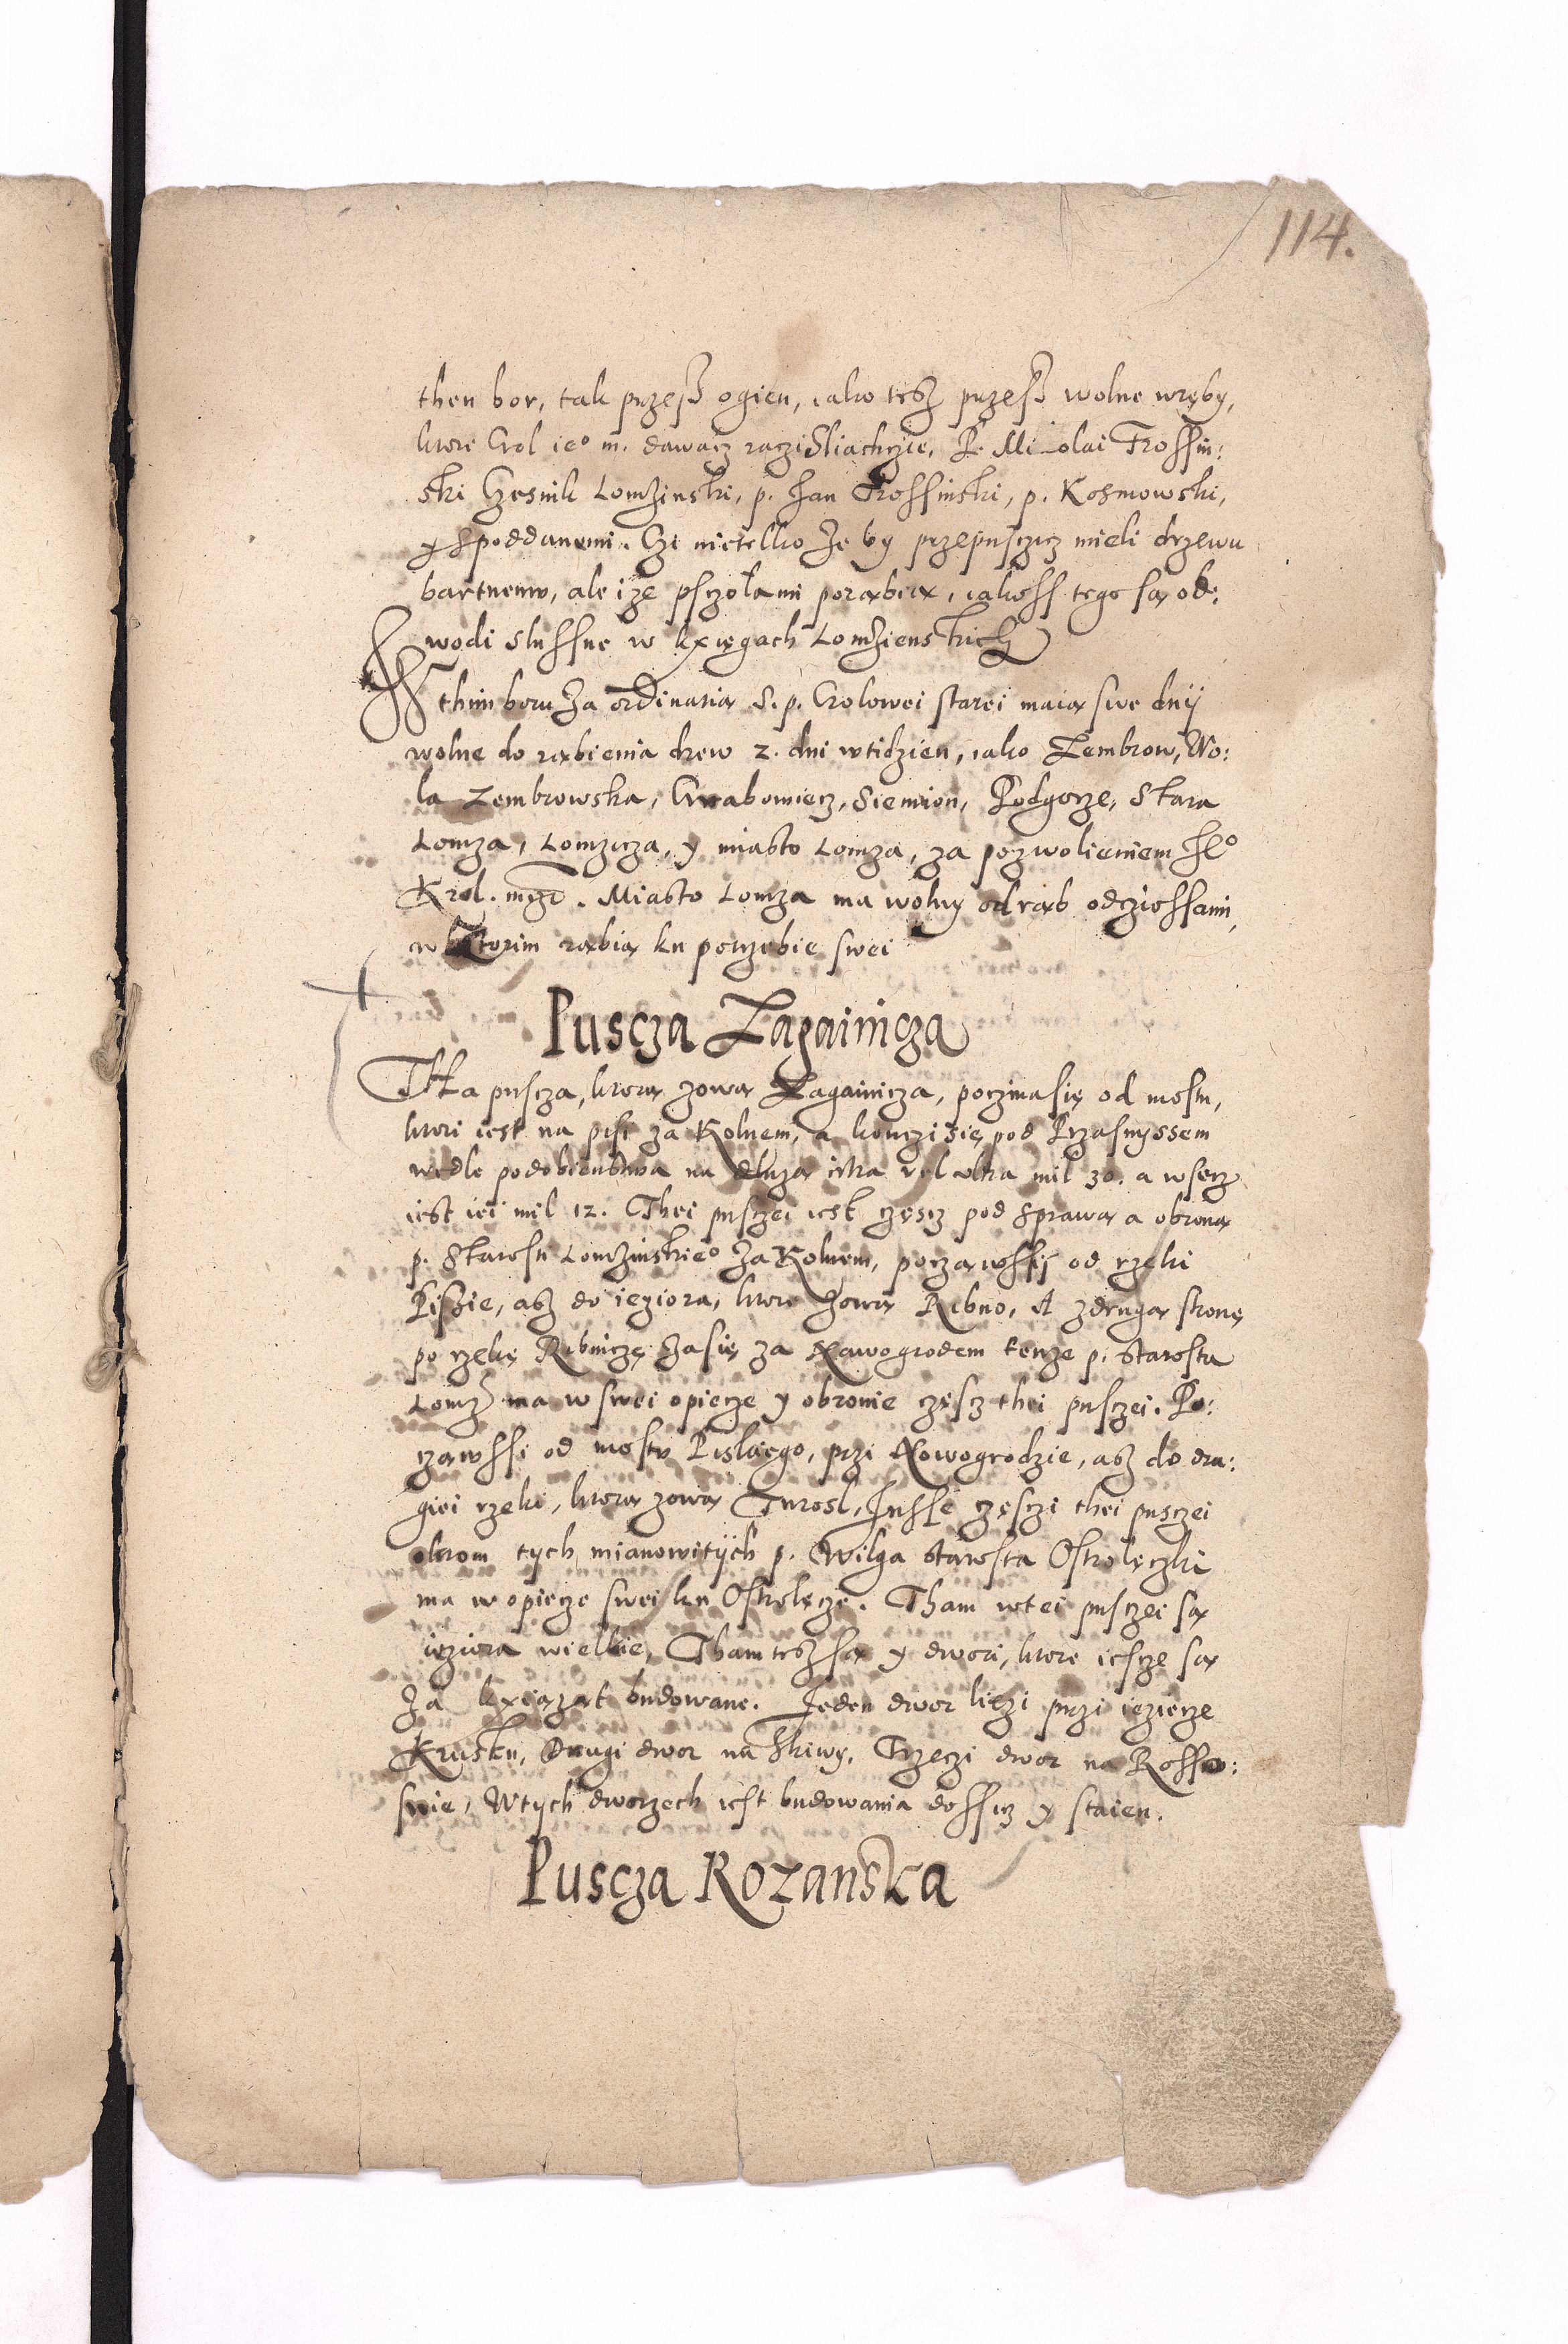 114.
then bor, tak przeß ogien, iako tesz przeß wolne wręby,
ktore Crol ieo m. dawacz raczi Sliachczie. P. Mi olai Trossin:
ski Czesnik Lomzinski, p. Jan Trossinski, p. Kosmowski,
y spoddanemi. Czi nietelko ze by przepusczicz mieli drzewu
bartnemu, ale i ze psczołami porąbią, iakoss tego są od:
wodi slussne w kxięgach Lomzienskich
W thim boru za ordinarią S. p. Crolowei starei maią swe dnij
wolne do rąbienia drew 2. dni wtidzien, iako Zembrow, Wo:
la Zembrowska, Grabowiecz, Siemion, Podgorze, Stara
Lomza, Lomzicza, y miasto Lomza, za pozwolieniem Jeo
Krol. mczi. Miasto Lomza ma wolny odrąb odcziossami,
w ktorim rąbią ku potrzebie swei
Puscza Zagainicza
Tha puscza, ktorą zową Zagainicza, poczina się od mostu,
ktori iest na pissi za Kolnem, a konczi się pod Przasnyssem
wedle podobienstwa na dłużą itha vel ultra mil 30. a wserz
iest iei mil 12. Thei pusczei iest częscz pod sprawą a obroną
p. Starosti Lomzinskieo za Kolnem, począwssij od rzeki
Pissie, asz do ieziora, ktore zową Ribno, A zdrugą stronę
po rzekę Ribniczę zasię za Nawogrodem tenze p. Starosta
Lomz ma w swei opiecze y obronie częscz thei pusczei. Po:
cząwssi od mostu Pislaego, przi Nowogrodzie, asz do dru:
giei rzeki, ktorą zową Turosl, Insse częsczi thei pusczei
okrom tych mianowitych p. Wilga Starosta Ostrolęczki
ma w opiecze swei ku Ostrolęcze. Tham wtei pusczei są
ieziora wielkie, Tham tesz są y dwori, ktore iescze są
za kxiążąt budowane. Jeden dwor liezi przi iezierze
Krusku, Drugi dwor na Skiwy, Trzeczi dwor na Rosso:
snie, Wtych dworzech iest budowania dossicz y staien.
Puscza Rozanska